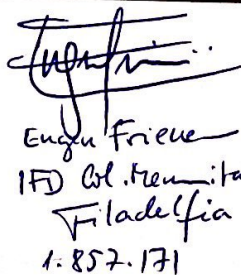 Eugen Friesen
IFD Col. Mennonita
Filadelfia
1.857.171